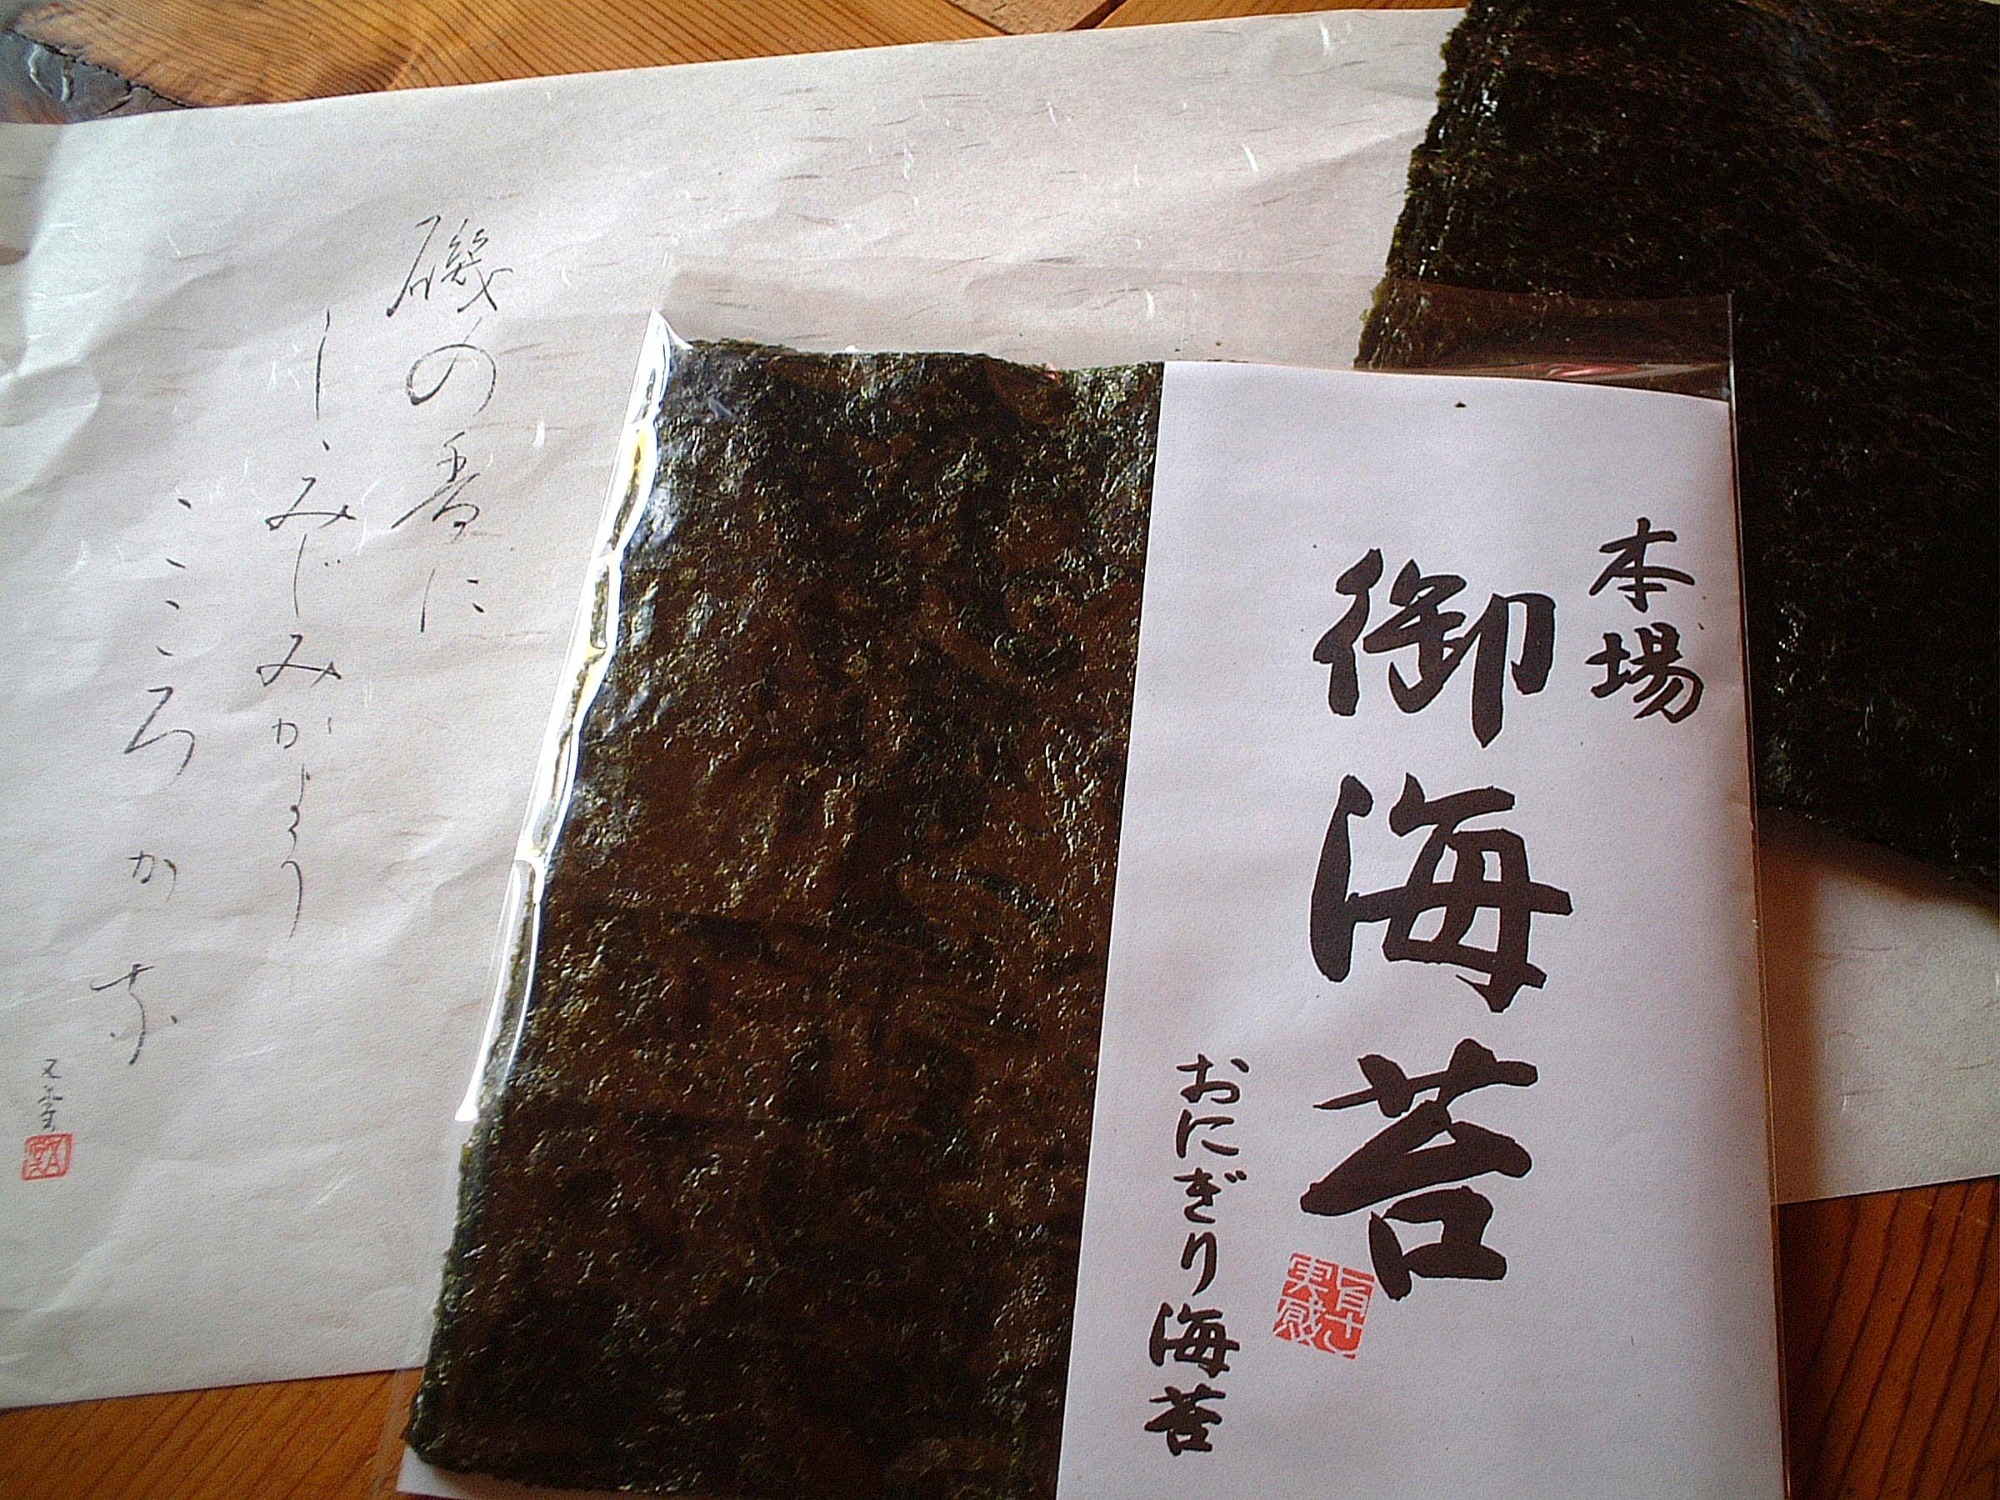 本場
御海苔
おにぎり海苔
実感
磯の香に
しみじみかよう
こころかな